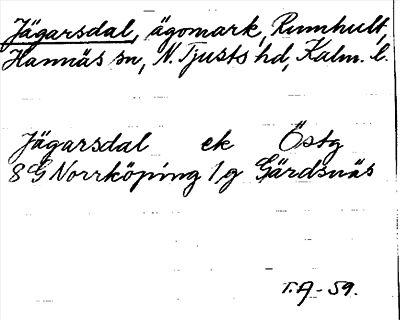 Jägarsdal, ägomark, Rumhult,
Hannäs sn, N. Tjusts hd, Kalm. l.
Jägarsdal ek Östg
8G Norrköping 1g Gärdsnäs
T.A - 59.